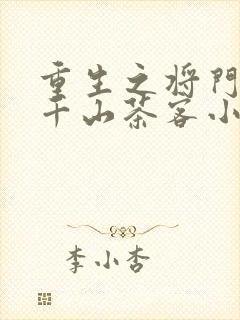 重生之将门
千山茶客小
李小杏